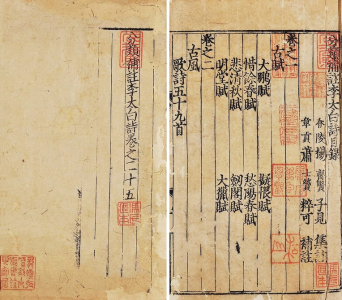 分類補註李太白詩目錄
春陵楊齊賢子見集註
章貢蕭士贇粹可補註
卷之一
古賦
大鵬賦
擬恨賦
惜餘春賦
愁陽春賦
悲清秋賦
劒閣賦
明堂賦
大獵賦
卷之二
古風
歌詩五十九首
分類補註李太白詩卷之二十五